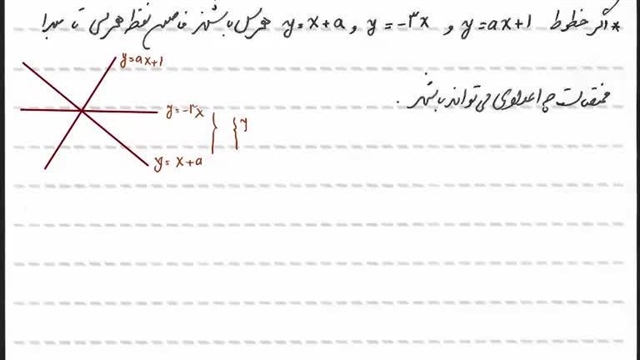 * اگر خطوط y = ax + 1 و y = -3x و y = x + a همرس باشند فاصله نقطه همرسی تا مبدا
مختصات چه اعدادی می تواند باشد .
y = ax + 1
y = -3x
y = x + a